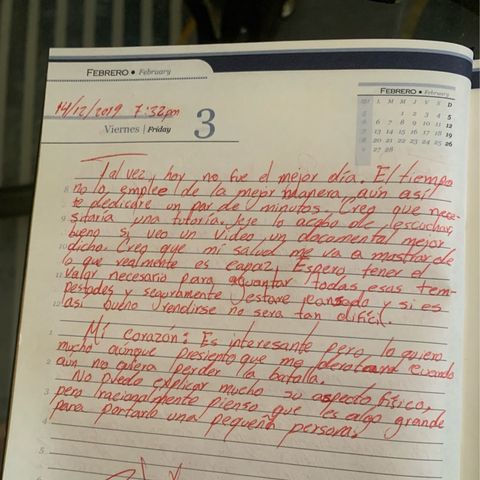 FEBRERO • February
14/12/2019 7:32pm
Viernes | Friday 3
FEBRERO • February
L M M J V S D
1 2 3 4 5
6 7 8 9 10 11 12
13 14 15 16 17 18 19
20 21 22 23 24 25 26
27 28
Tal vez, hoy no fue el mejor día. El tiempo
8 no lo emplee de la mejor manera, aún así
te dedicare un par de minutos. Creo que nece-
9 sitaria una tutoría. Jeje lo acabo de escuchar,
bueno si veo un video, un documental mejor
10 dicho. Creo que mi salud me va a mostrar de
lo que realmente es capaz, Espero tener el
11 valor necesario para aguantar todas esas tem-
pestades y seguramente estare cansado y si es
12 así bueno rendirse no sera tan difícil.
1 Mi corazón: Es interesante pero lo quiero
mucho aunque presiento que me derrotara cuando
2 aún no quiera perder la batalla.
No puedo explicar mucho su aspecto físico,
3 pero racionalmente pienso que es algo grande
para portarlo una pequeña persona.
4
5
6